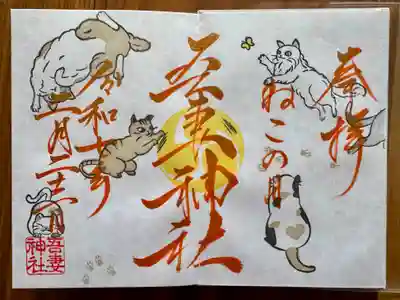 奉拝
ねこの日
吾妻神社
令和
二月二十二日
吾妻
神社